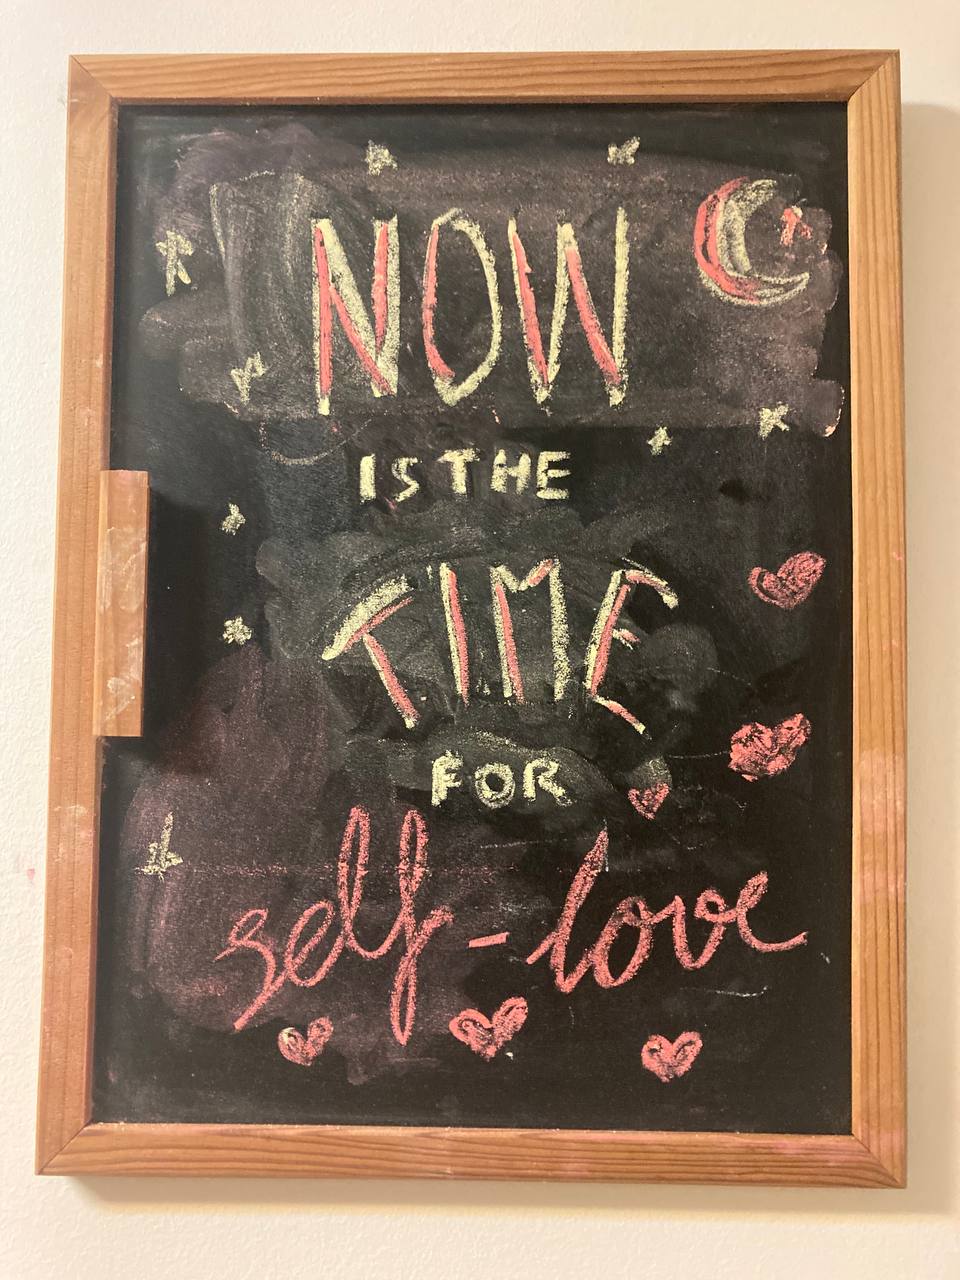 NOW
IS THE
TIME
FOR
self-love